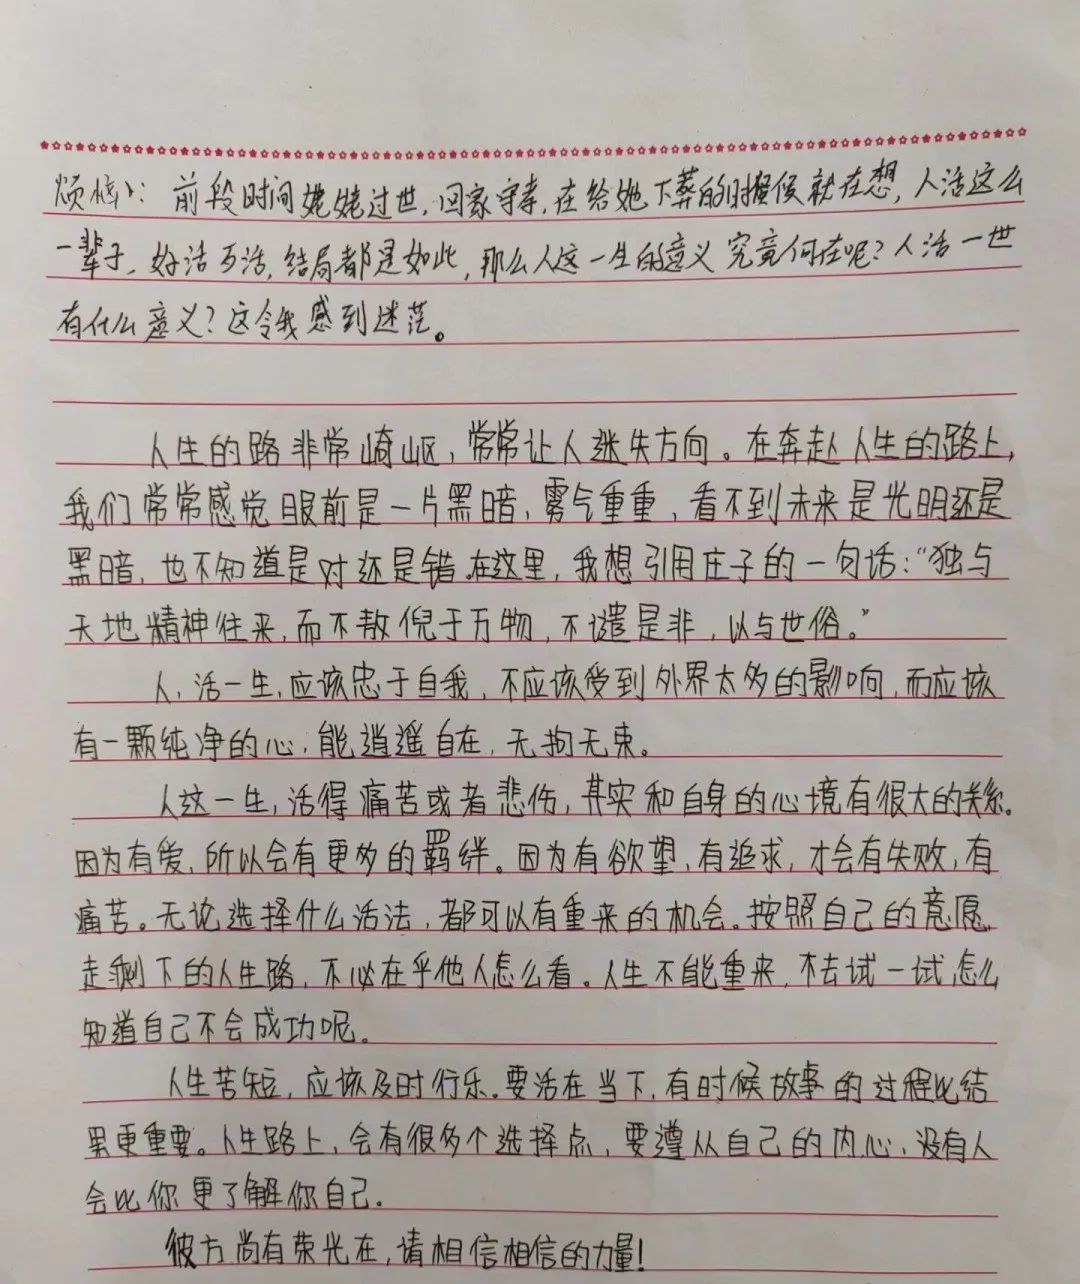 烦恼：前段时间姥姥过世，回家守孝，在给她下葬的时候就在想，人活这么
一辈子，好活歹活，结局都是如此，那么人这一生的意义究竟何在呢？人活一世
有什么意义？这令我感到迷茫。
人生的路非常崎岖，常常让人迷失方向。在奔赴人生的路上，
我们常常感觉眼前是一片黑暗，雾气重重，看不到未来是光明还是
黑暗，也不知道是对还是错。在这里，我想引用庄子的一句话：“独与
天地精神往来，而不敖倪于万物，不谴是非，以与世俗。”
人，活一生，应该忠于自我，不应该受到外界太多的影响，而应该
有一颗纯净的心，能逍遥自在，无拘无束。
人这一生，活得痛苦或者悲伤，其实和自身的心境有很大的关系。
因为有爱，所以会有更多的羁绊。因为有欲望，有追求，才会有失败，有
痛苦。无论选择什么活法，都可以有重来的机会。按照自己的意愿，
走剩下的人生路，不必在乎他人怎么看。人生不能重来，不去试一试，怎么
知道自己不会成功呢。
人生苦短，应该及时行乐。要活在当下，有时候故事的过程比结
果更重要。人生路上，会有很多个选择点，要遵从自己的内心，没有人
会比你更了解你自己。
彼方尚有荣光在，请相信相信的力量！